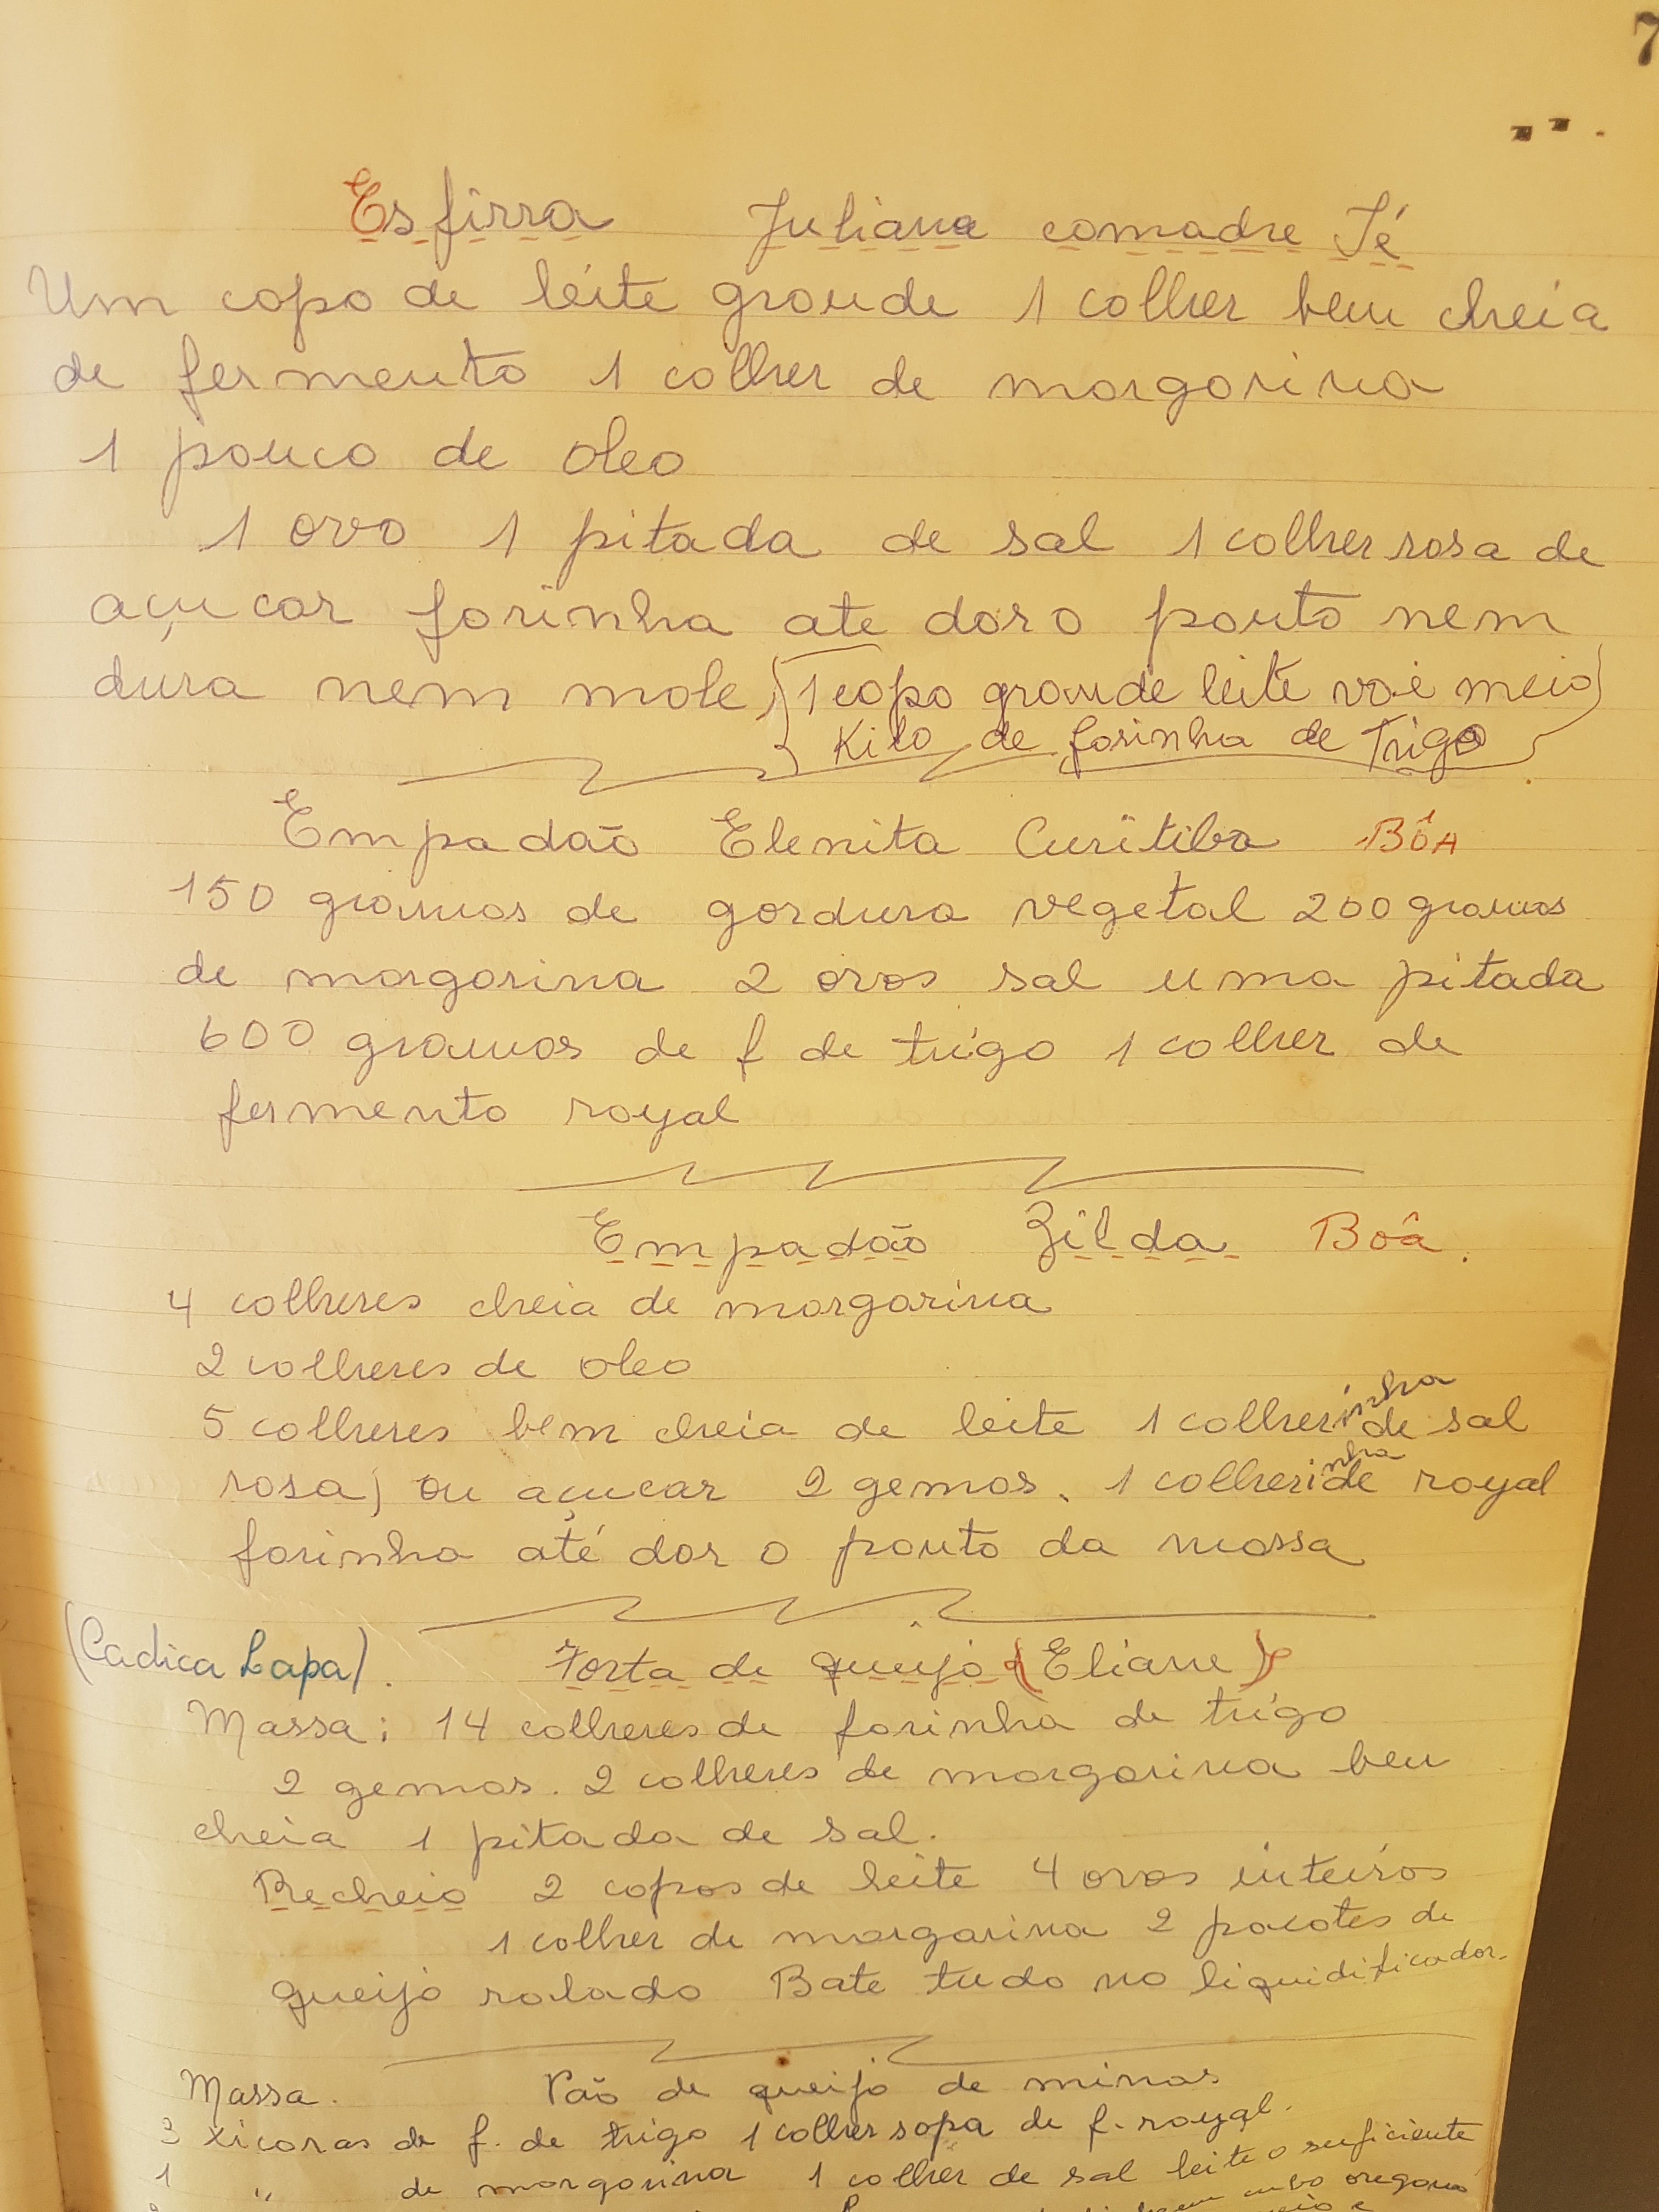 7
Esfirra Juliana comadre Té
Um copo de leite grande 1 colher bem cheia
de fermento 1 colher de margarina
1 pouco de oleo
1 ovo 1 pitada de sal 1 colher rasa de
açucar farinha ate dar o ponto nem
dura nem mole, (1 copo grande leite vai meio
Kilo de farinha de Trigo)
Empadão Elenita Curitiba BôA
150 gramas de gordura vegetal 200 gramas
de margarina 2 ovos sal uma pitada
600 gramas de f de trigo 1 colher de
fermento royal
Empadão Zilda Boâ.
4 colheres cheia de margarina
2 colheres de oleo
5 colheres bem cheia de leite 1 colherinha de sal
rosa) ou açucar 2 gemas. 1 colherinha de royal
farinha até dar o ponto da massa
(Cadica Lapa). Torta de queijo (Eliane)
Massa: 14 colheres de farinha de trigo
2 gemas. 2 colheres de margarina bem
cheia 1 pitada de sal.
Recheio 2 copos de leite 4 ovos inteiros
1 colher de margarina 2 pacotes de
queijo ralado Bate tudo no liquidificador.
Massa. Pão de queijo de minas
3 xicaras de f. de trigo 1 colher sopa de f. royal.
1 " de margarina 1 colher de sal leite o suficiente
oregano